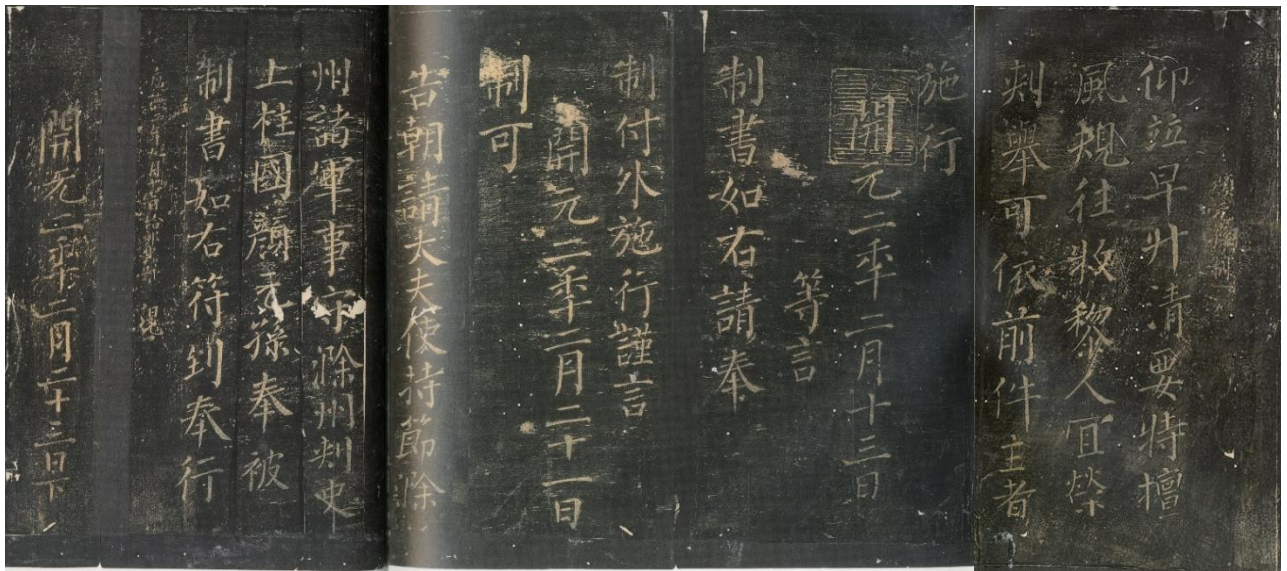 仰竝早升清要特擅
風規往牧黎人宜榮
刾舉可依前件主者
施行
開元二年二月十三日
等言
制書如右請奉
制付外施行謹言
開元二年二月二十一日
制可
告朝請大夫使持節滁
州諸軍事守滁州刾史
上柱國顏元孫奉被
制書如右符到奉行
開元二年二月二十三日下